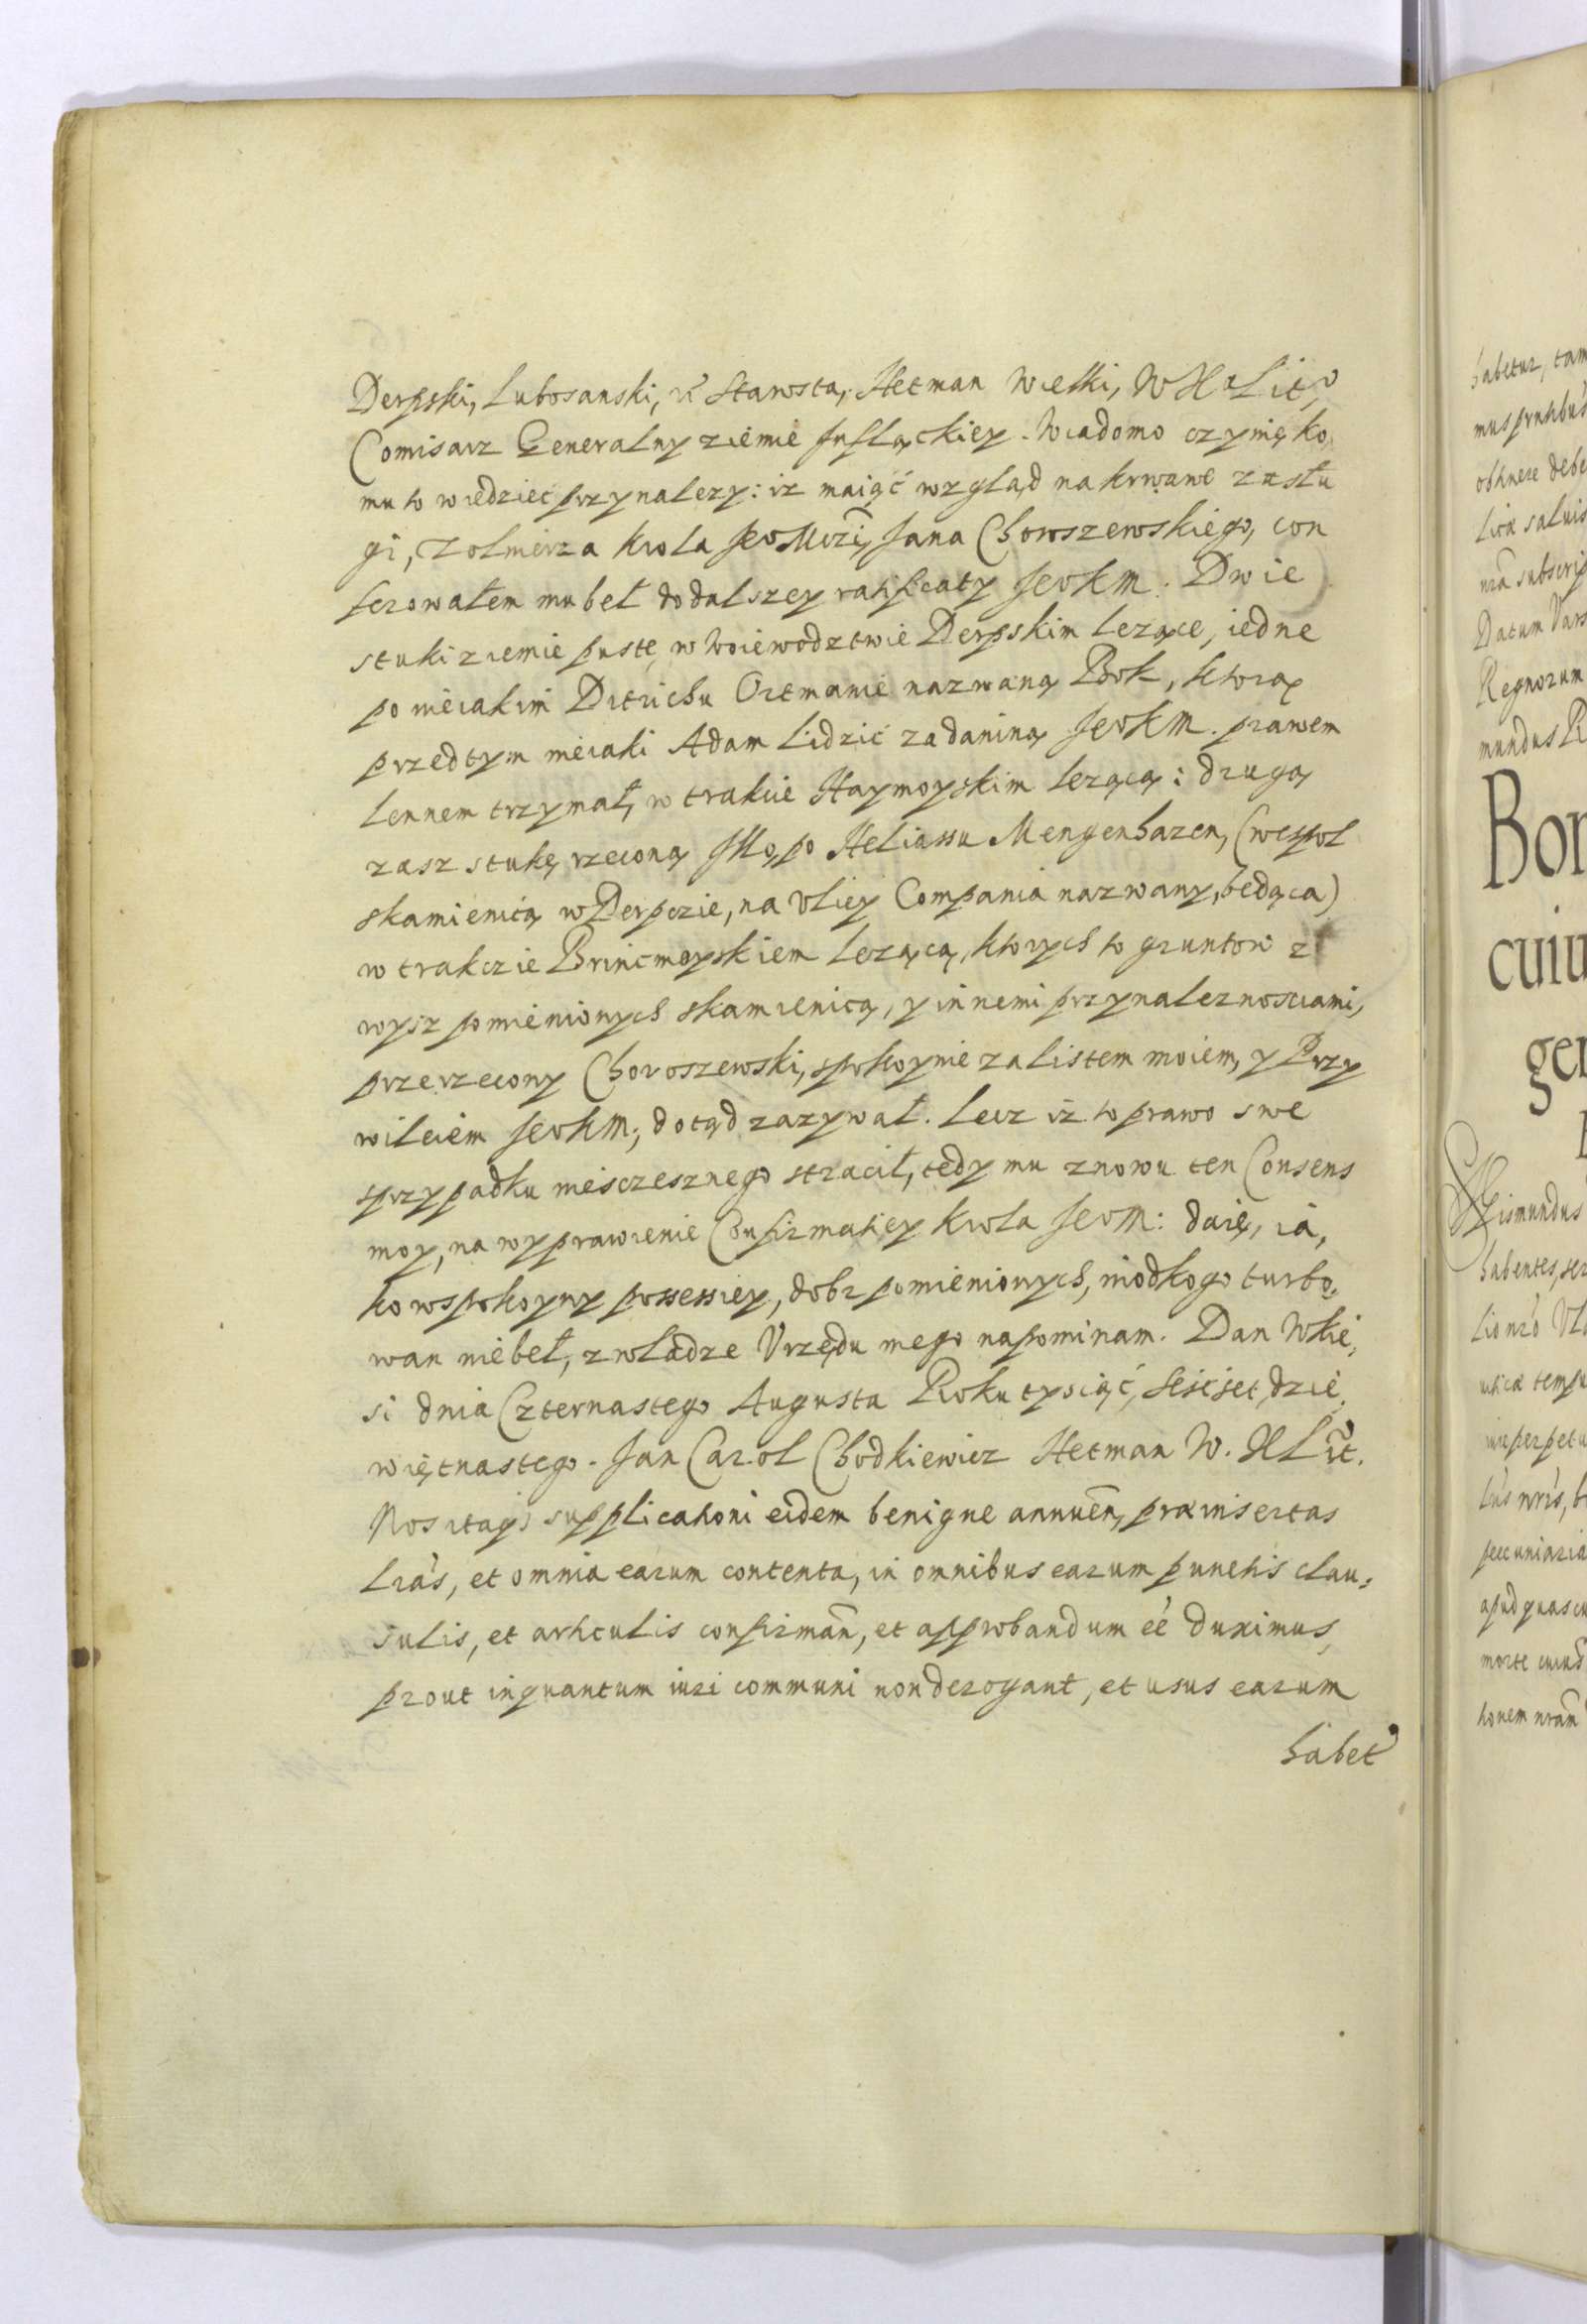 Derpski, Lubosanski, &c Starosta, Hetman Wielki, W X Lit,
Comisarz Generalny ziemie Jnfląckiey. Wiadomo czynię ko
mu to wiedziec przynalezy: iz maiąć wzgląd na krwawe zasłu
gi, zolnierza krola Jeo Mczi, Jana Choroszewskiego, con
ferowałem mu beł do dalszey ratificaty JeoKM. Dwie
stuki ziemie puste, w Woiewodztwie Derpskim lezące, iedne
po nieiakim Ditrichu Ortmanie nazwaną Bok, ktorą
przedtym nieiaki Adam Lidzic za daniną JeoKM. prawem
lennem trzymał, w trakcie Haymoyskim lezącą: drugą
zasz stukę rzeconą Jllo, po Heliassu Mengenhazen, (wespol
skamienicą w Derpczie, na Vlicy Compania nazwany, będąca)
w trakczie Brincmoyskiem lezącą, ktorych to gruntow z
wysz pomienionych skamienicą, y innemi przynaleznosciami,
przerzecony Choroszewski, spokoynie za listem moiem, y Przy
wileiem JeoKM; dotąd zazywał. Lecz iz to prawo swe
sprzypadku niesczesznego stracił, tedy mu znowu ten Consens
moy, na wyprawienie Confirmatiey krola JeoM: daię, ia,
ko wspokoyny possessiey, dobr pomienionych, niodkogo turbo,
wan niebeł, zwładze Vrzędu mego napominam. Dan Wkie,
si dnia Czternastego Augusta Roku tysiąć, sesćset, dzie,
więtnastego. Jan Carol Chodkiewicz Hetman W. X Lit.
Nos itaq supplicationi eidem benigne annuen, præinsertas
Lras, et omnia earum contenta, in omnibus earum punctis clau,
sulis, et articulis confirman, et approbandum eé duximus,
prout inquantum iuri communi non derogant, et usus earum
habet

habetur, tam
obtinere debe
Datum Vars
Regnorum
Bon
cuiu
gen
habentes, ser